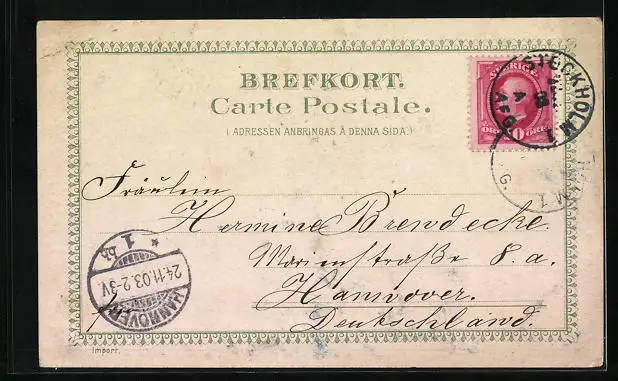 BREFKORT.
Carte Postale.
(ADRESSEN ANBRINGAS Å DENNA SIDA.)
SVERIGE
10
ÖRE
STOCKHOLM 1
AFG
G.
Fräulein
Hermine Brendecke.
Marienstraße 8.a.
Hannover.
Deutschland.
HANNOVER
24.11.03.2-3V.
* 1 *
Import.